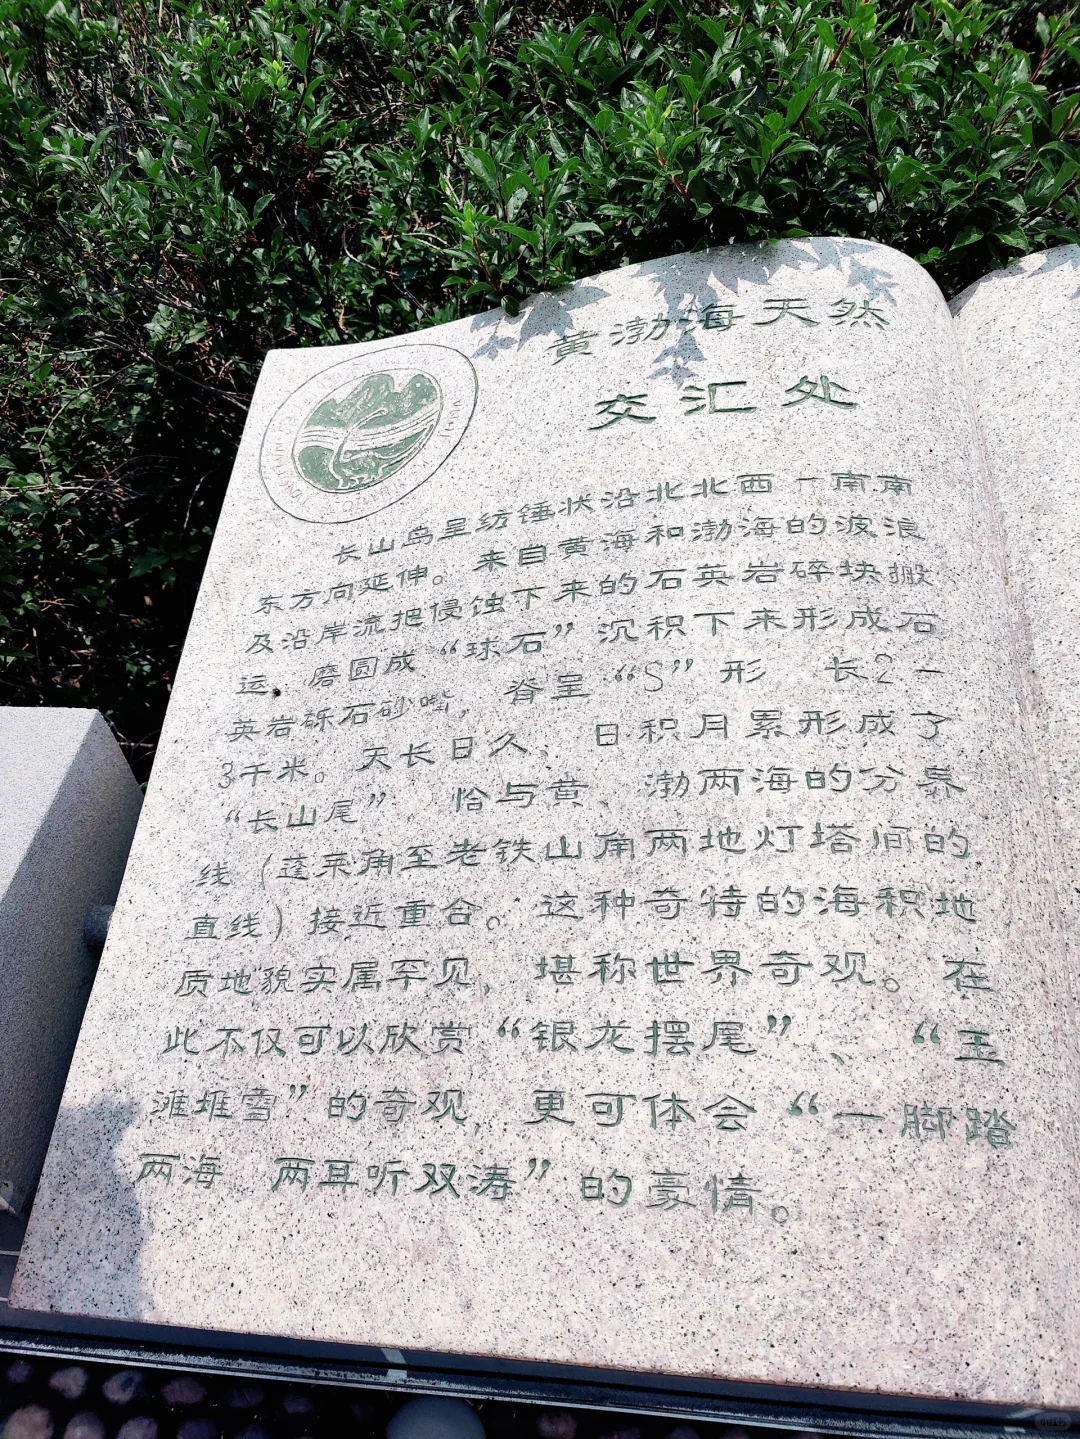 黄渤海天然
交汇处
长山岛呈纺锤状沿北北西－南南
东方向延伸。来自黄海和渤海的波浪
及沿岸流把侵蚀下来的石英岩碎块搬
运，磨圆成“球石”沉积下来形成石
英岩砾石砂嘴，脊呈“S”形 长2－
3千米。天长日久、日积月累形成了
“长山尾” 恰与黄、渤两海的分界
线（蓬莱角至老铁山角两地灯塔间的
直线）接近重合。这种奇特的海积地
质地貌实属罕见，堪称世界奇观。在
此不仅可以欣赏“银龙摆尾”、“玉
滩堆雪”的奇观，更可体会“一脚踏
两海 两耳听双涛”的豪情。
小红书